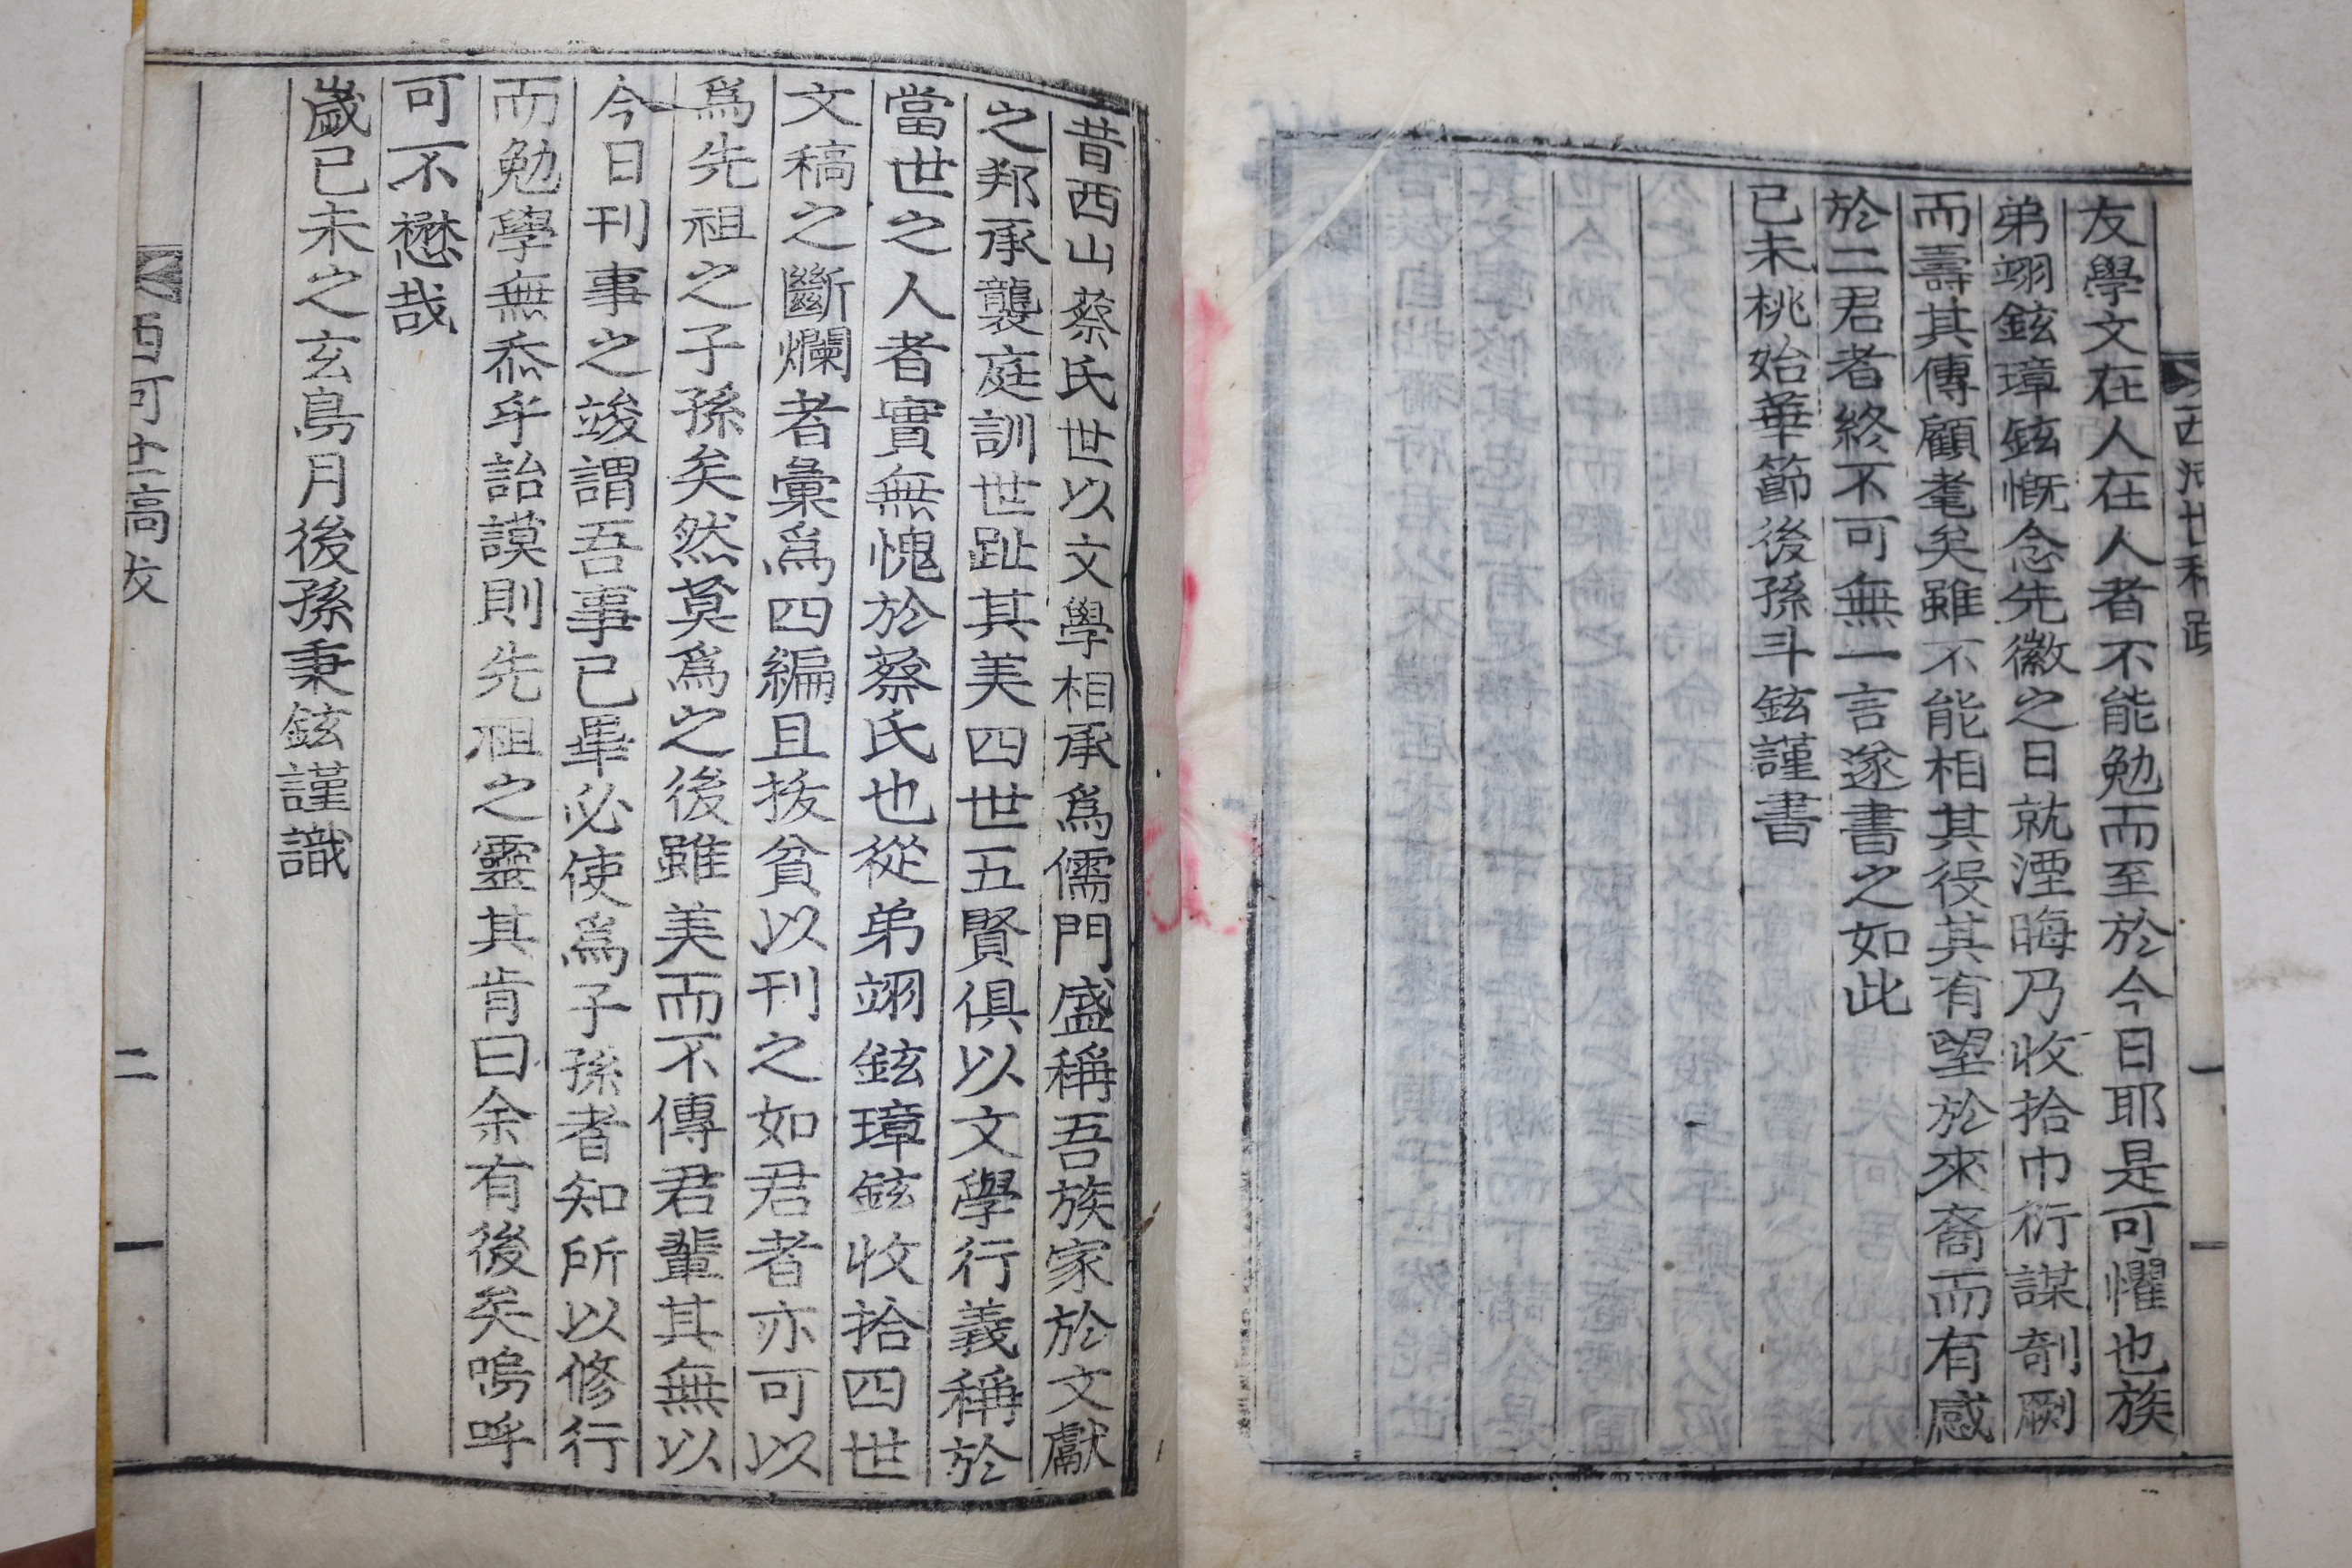 友學文在人在人者不能勉而至於今日耶是可懼也族
弟翊鉉璋鉉慨念先徽之日就湮晦乃收拾巾衍謀剞劂
而壽其傳顧耄矣雖不能相其役其有望於來裔而有感
於二君者終不可無一言遂書之如此
已未桃始華節後孫斗鉉謹書
一
昔西山蔡氏世以文學相承爲儒門盛稱吾族家於文獻
之邦承襲庭訓世趾其美四世五賢俱以文學行義稱於
當世之人者實無愧於蔡氏也從弟翊鉉璋鉉收拾四世
文稿之斷爛者彙爲四編且拔貧以刊之如君者亦可以
爲先祖之子孫矣然莫爲之後雖美而不傳君輩其無以
今日刊事之竣謂吾事已畢必使爲子孫者知所以修行
而勉學無忝乎詒謨則先祖之靈其肯曰余有後矣嗚呼
可不懋哉
歲已未之玄鳥月後孫秉鉉謹識
西河世稿友
二